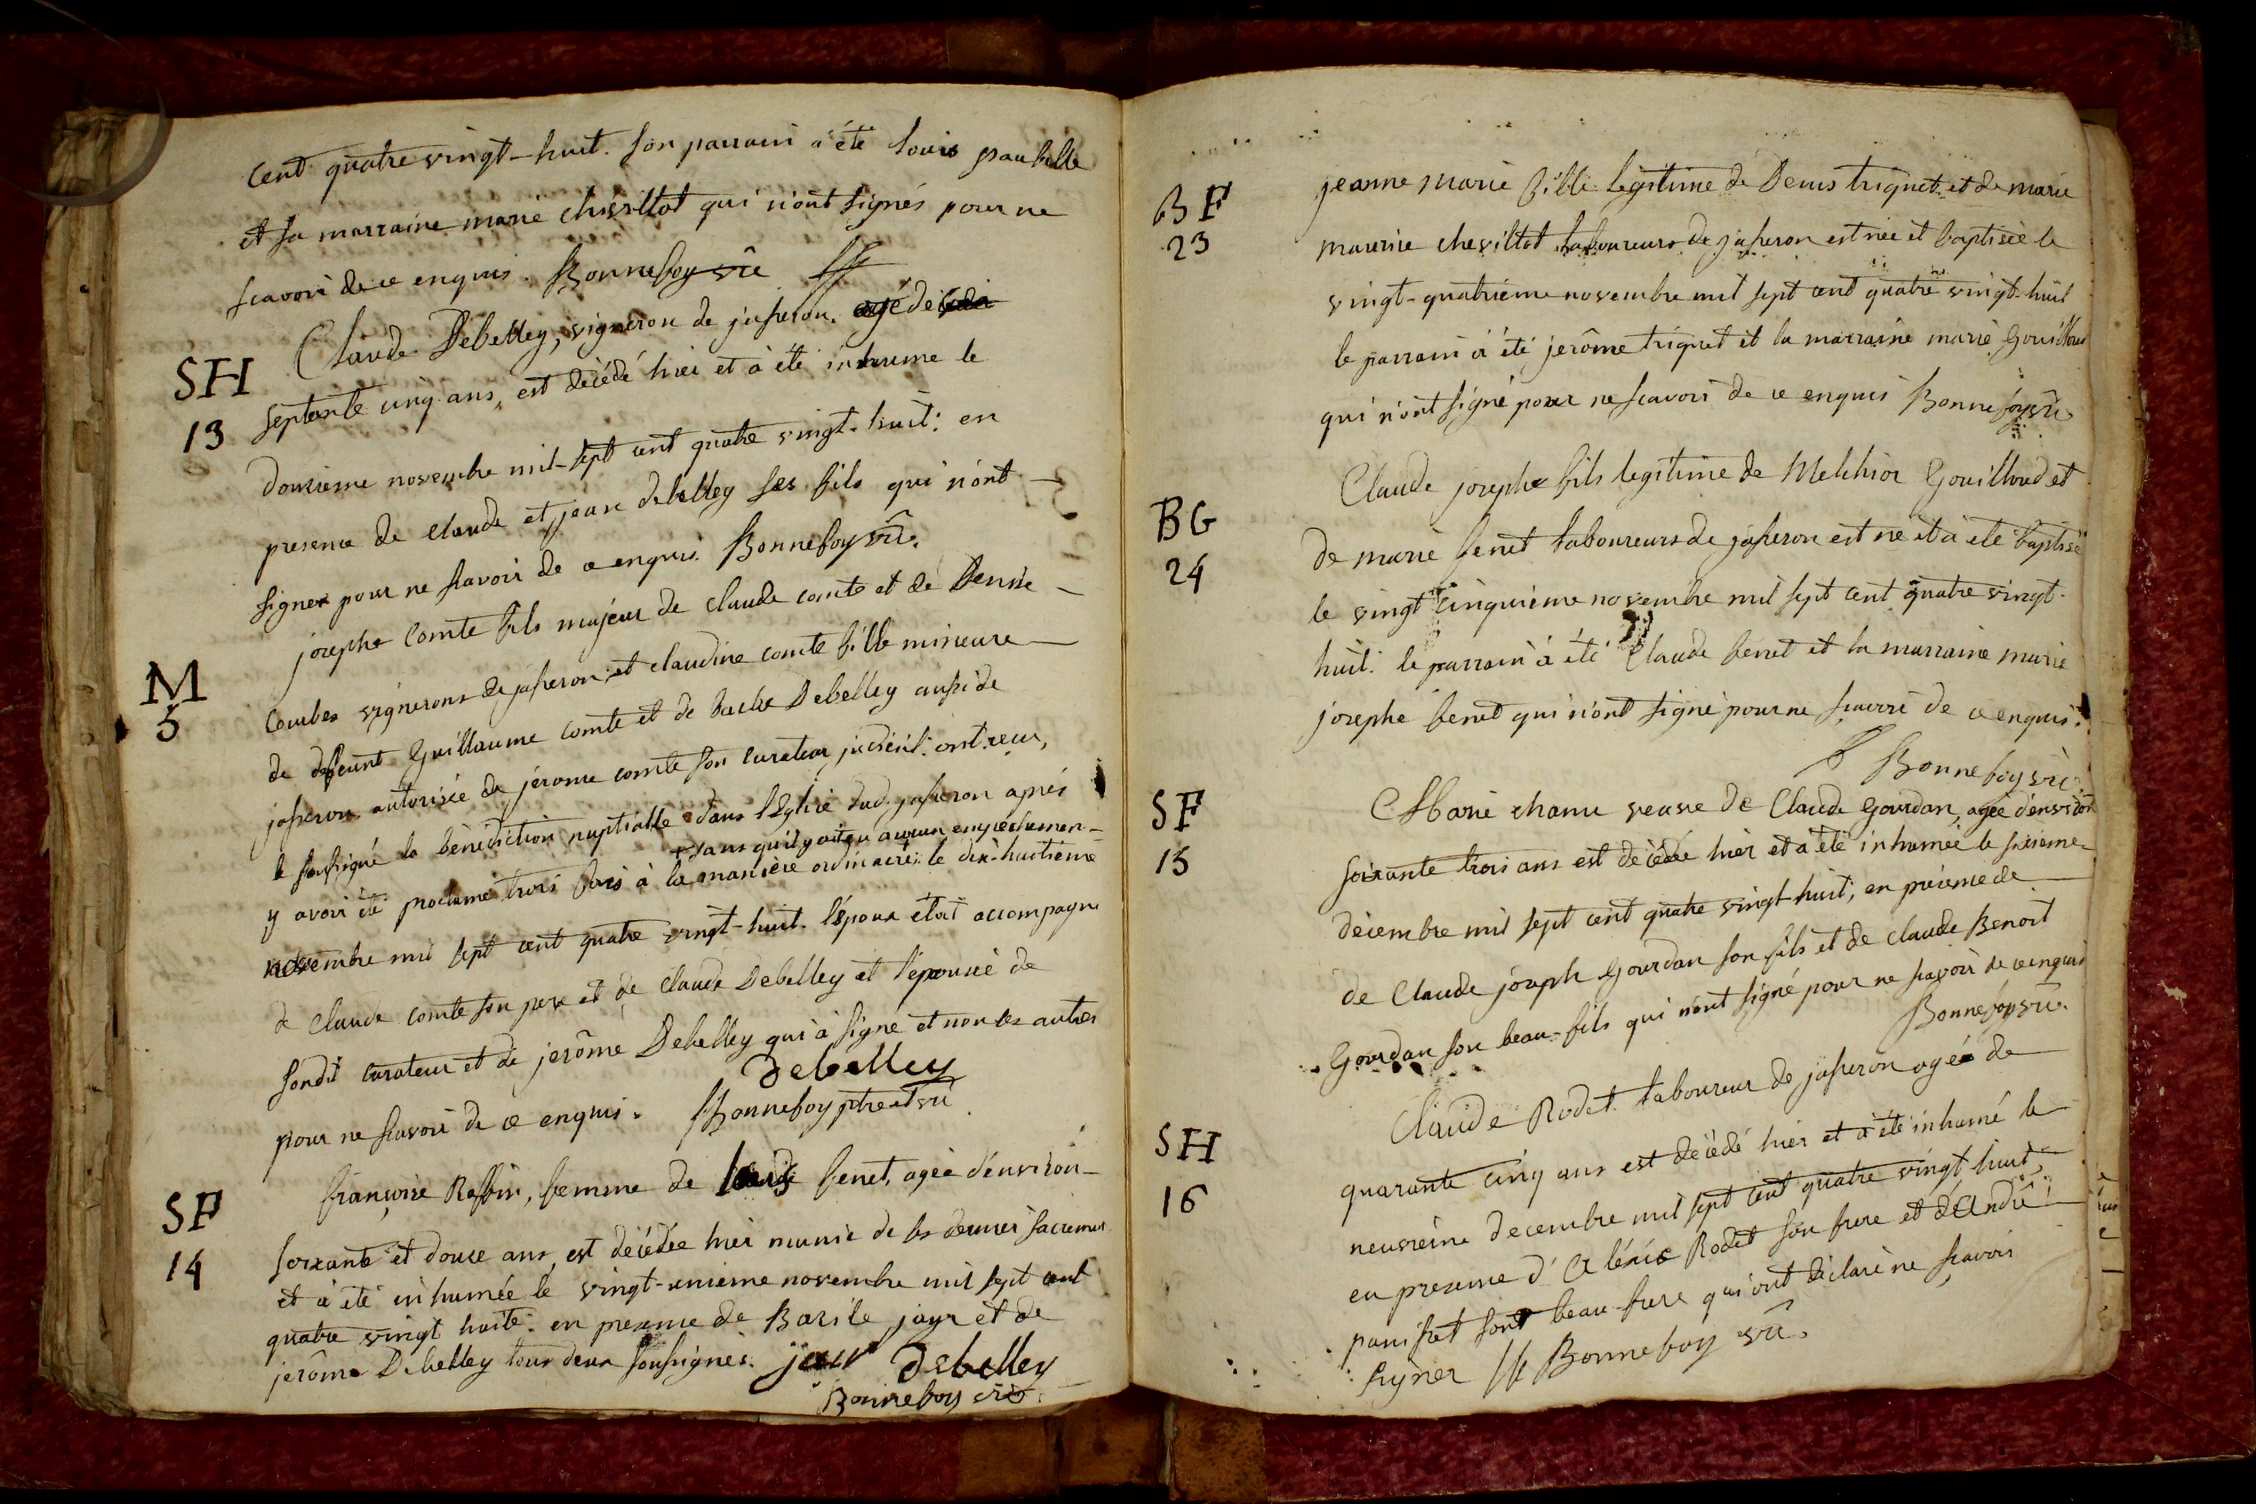 cent quatre vingt-huit. son parrain a été Louis
et sa marraine marie chevillot qui n'ont signés pour ne
scavoir de ce enquis. Bonnefoy vic
SH
13
Claude Debelley, vigneron de jasseron. agé de
septante cinq ans, est décédé hier et à été inhumé le
douzieme novembre mil-sept cent quatre vingt-huit: en
presence de claude et jean debelley ses fils qui n'ont
signer pour ne scavoir de ce enquis. Bonnefoy vic.
M
5
josephe Comte fils majeur de claude comte et de Denise
Combes vignerons de jasseron et claudine comte fille mineure
de deffunt Guillaume comte et de Debelley aussi de
jasseron autorisée de jérome comte son curateur ont reçus,
le soussigné la bénédiction nuptialle dans l'Eglise dud. jasseron après
+ sans qu'il y ait eu aucun empechemen-
y avoir été proclamé trois fois à la manière ordinaire: le dix-huitième
novembre mil sept cent quatre vingt-huit. l'époux étoit accompagné
de claude comte son pere et de claude Debelley et l'epouse de
sondit curateur et de jerôme Debelley qui à signé et non les autres
pour ne scavoir de ce enquis. Debelley
Bonnefoy ptre et vic
SF
14
françoise Raffin, femme de benet, agée d'environ-
soixante et douze ans, est décédée hier munie de ses derniers sacremens
et à été inhumée le vingt-unieme novembre mil sept cent
quatre vingt huite. en presence de Basile jayr et de
jerôme Debelley tous deux soussignés. jayr Debelley
Bonnefoy vic.
BF
23
jeanne marie fille legitime de Denis triquet et de marie
maurise chevillot laboureurs de jasseron est née et baptisée le
vingt-quatrieme novembre mil sept cent quatre vingt-huit
le parrain à été jerôme triquet et la marraine marie Gouilloud
qui n'ont signé pour ne scavoir de ce enquis Bonnefoy vic
BG
24
Claude josephe fils legitime de Melchior Gouilloud et
de marie benet laboureurs de jasseron est né et à été baptisé
le vingt cinquieme novembre mil sept cent quatre vingt-
huit: le parrain à été Claude benet et la marraine marie
josephe benet qui n'ont signé pour ne scavoir de ce enquis.
Bonnefoy vic.
SF
15
Marie chanu veuve de Claude Gourdan, agée d'environ
soixante trois ans est décédée hier et à été inhumée le sixieme
decembre mil sept cent quatre vingt-huit; en présence de
de Claude joseph Gourdan son fils et de claude Benoit
Gourdan son beau-fils qui n'ont signé pour ne scavoir de ce enquis
Bonnefoy vic.
SH
16
Claude Rodet laboureur de jasseron agé de
quarante cinq ans est décédé hier et à été inhumé le
neuvieme decembre mil sept cent quatre vingt huit,
en presence d'Aléxis Rodet son frere et d'André
panisset son beau-frere qui ont déclaré ne scavoir
signer Bonnefoy vic.